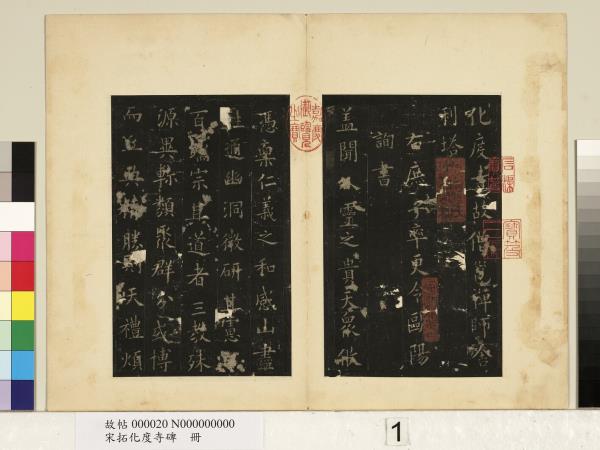 化度寺故僧邕禪師舍
利塔
右庶子率更令歐陽
詢書
蓋聞人靈之貴天象攸
嘉慶御覽之寶
憑稟仁義之和感山盡
性通幽洞微研其慮
百端宗其道者三教殊
源異軫類聚群分或博
而勝則禮煩
故帖 000020 N000000000
宋拓化度寺碑 冊
1